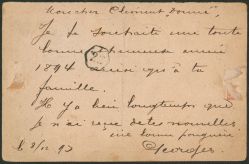 Mon cher Clément Louis,
Je te souhaite une toute
bonne heureuse année
1894 ainsi qu'à ta
famille.
Il y a bien longtemps que
je n'ai reçu de tes nouvelles
une bonne poignée
Georges
93